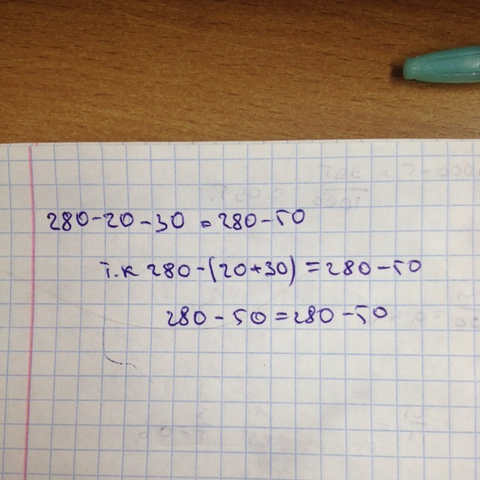 280-20-30 = 280-50
т.к 280-(20+30) = 280-50
280-50=280-50